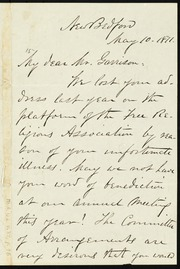 New Bedford
May 10. 1871.
My dear Mr. Garrison:
We lost your ad-
dress last year on the
platform of the Free Re-
ligious Association by rea-
son of your unfortunate
illness. May we not have
your word of benediction
at our annual Meeting
this year? The Committee
of Arrangements are
very desirous that you would